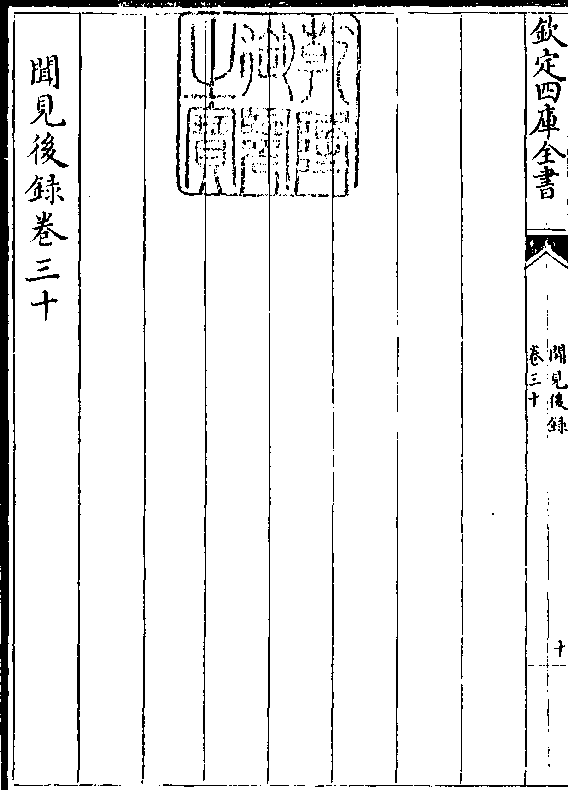 欽定四庫全書
聞見後録
卷三十
十
乾隆御覽之寶
聞見後録卷三十